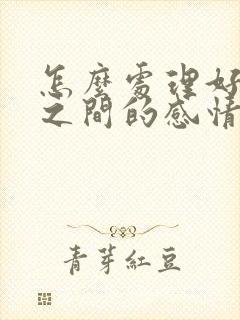 怎麼處理好
之間的感情
青芽紅豆